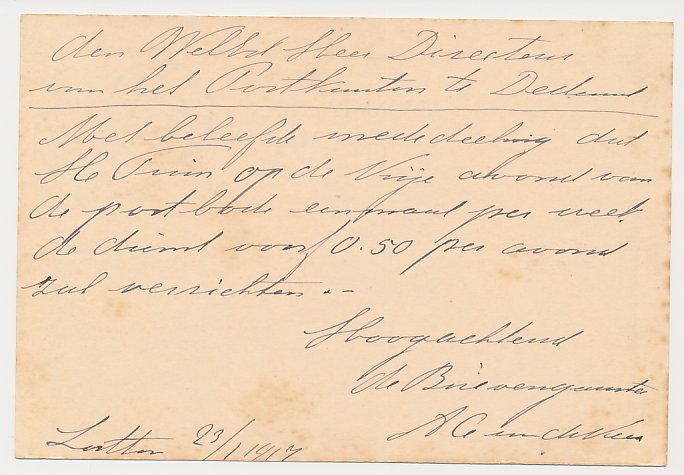 den WelEd Heer Directeur
van het Postkantoor te
Met beleefde mededeeling dat
H Pruim op de Vrije avond van
de postbode eenmaal per week
de dienst voor f 0.50 per avond
zal verrichten.-
Hoogachtend
de Brievengaarder
Lutten 23/1 1917